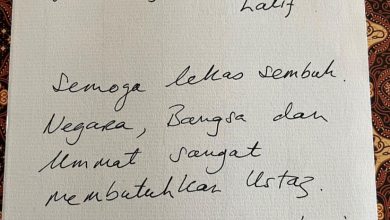 Latif
Semoga lekas sembuh.
Negara, Bangsa dan
Ummat sangat
membutuhkan Ustaz.